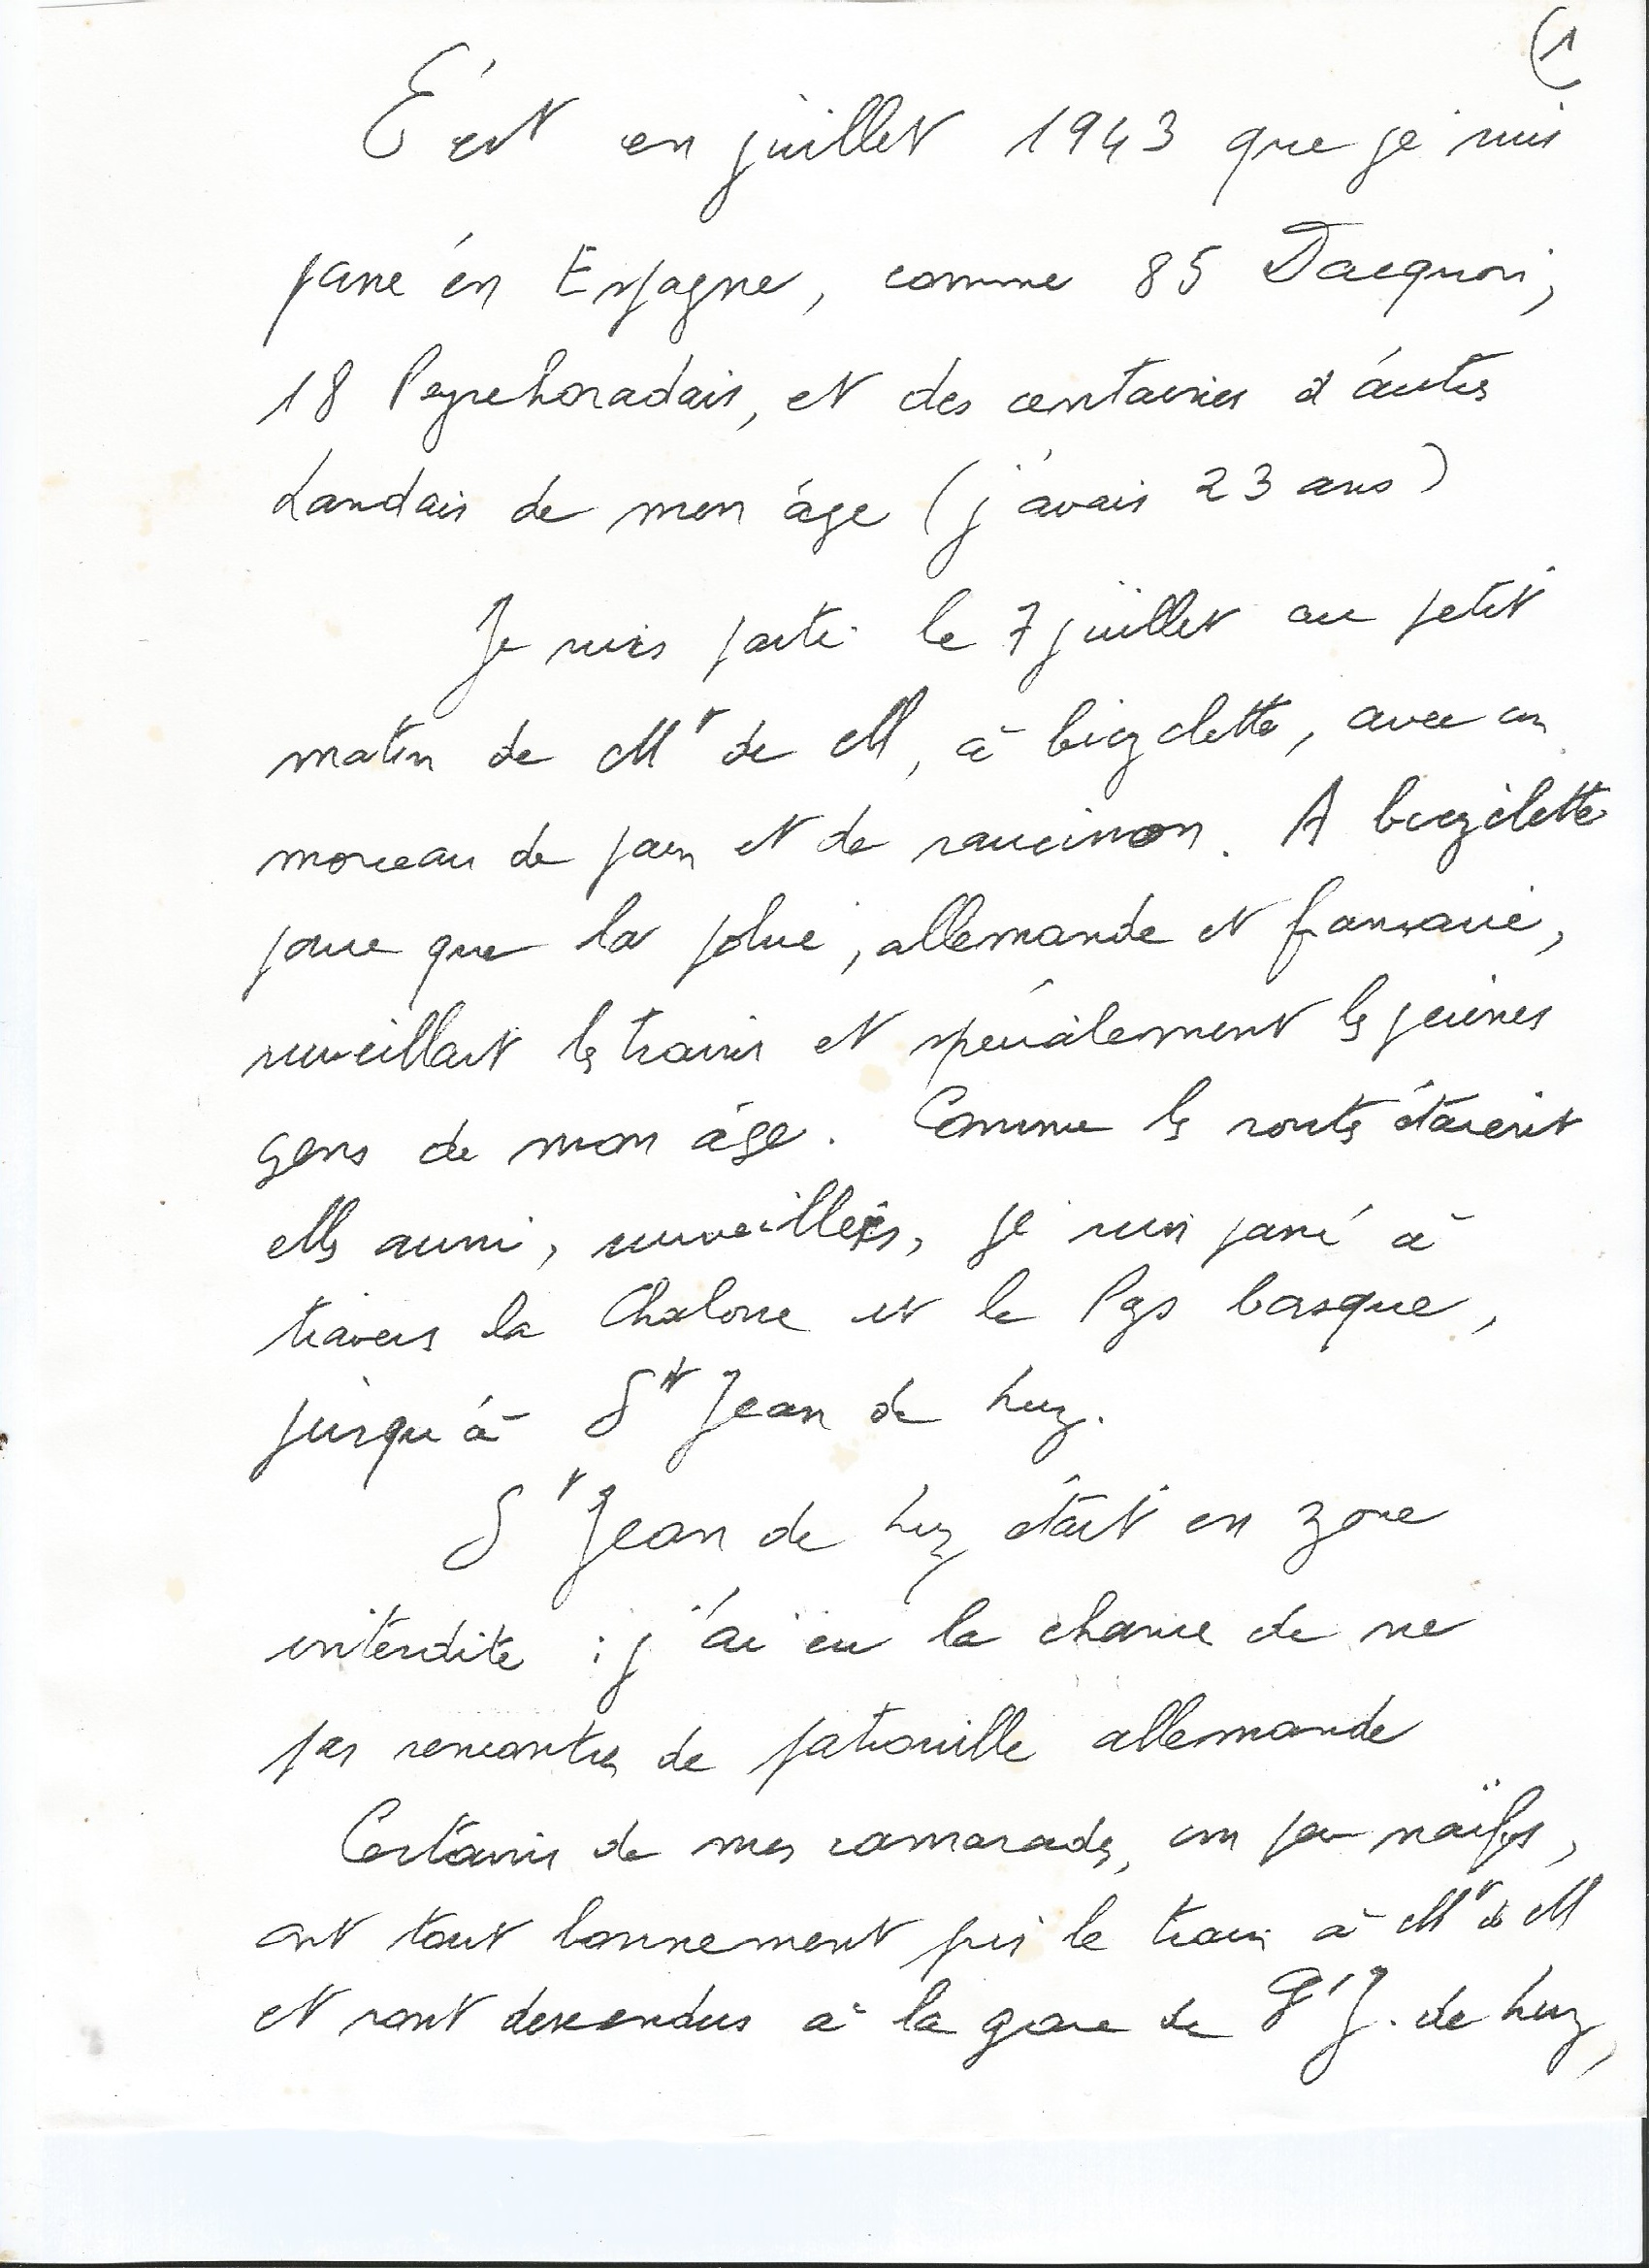 ①
C'est en juillet 1943 que je suis
passé en Espagne, comme 85 Dacquois,
18 Peyrehoradais, et des centaines d'autres
Landais de mon âge (j'avais 23 ans)
Je suis parti le 7 juillet au petit
matin de Mt de M, à bicyclette, avec un
morceau de pain et de saucisson. A bicyclette
parce que la police, allemande et française,
surveillait les trains et spécialement les jeunes
gens de mon âge. Comme les routes étaient
elles aussi, surveillées, je suis passé à
travers la Chalosse et le Pays basque,
jusqu'à St Jean de Luz.
St Jean de Luz était en zone
interdite : j'ai eu la chance de ne
pas rencontrer de patrouille allemande
Certains de mes camarades, un peu naïfs,
ont tout bonnement pris le train à Mt de M
et sont descendus à la gare de St J. de Luz,